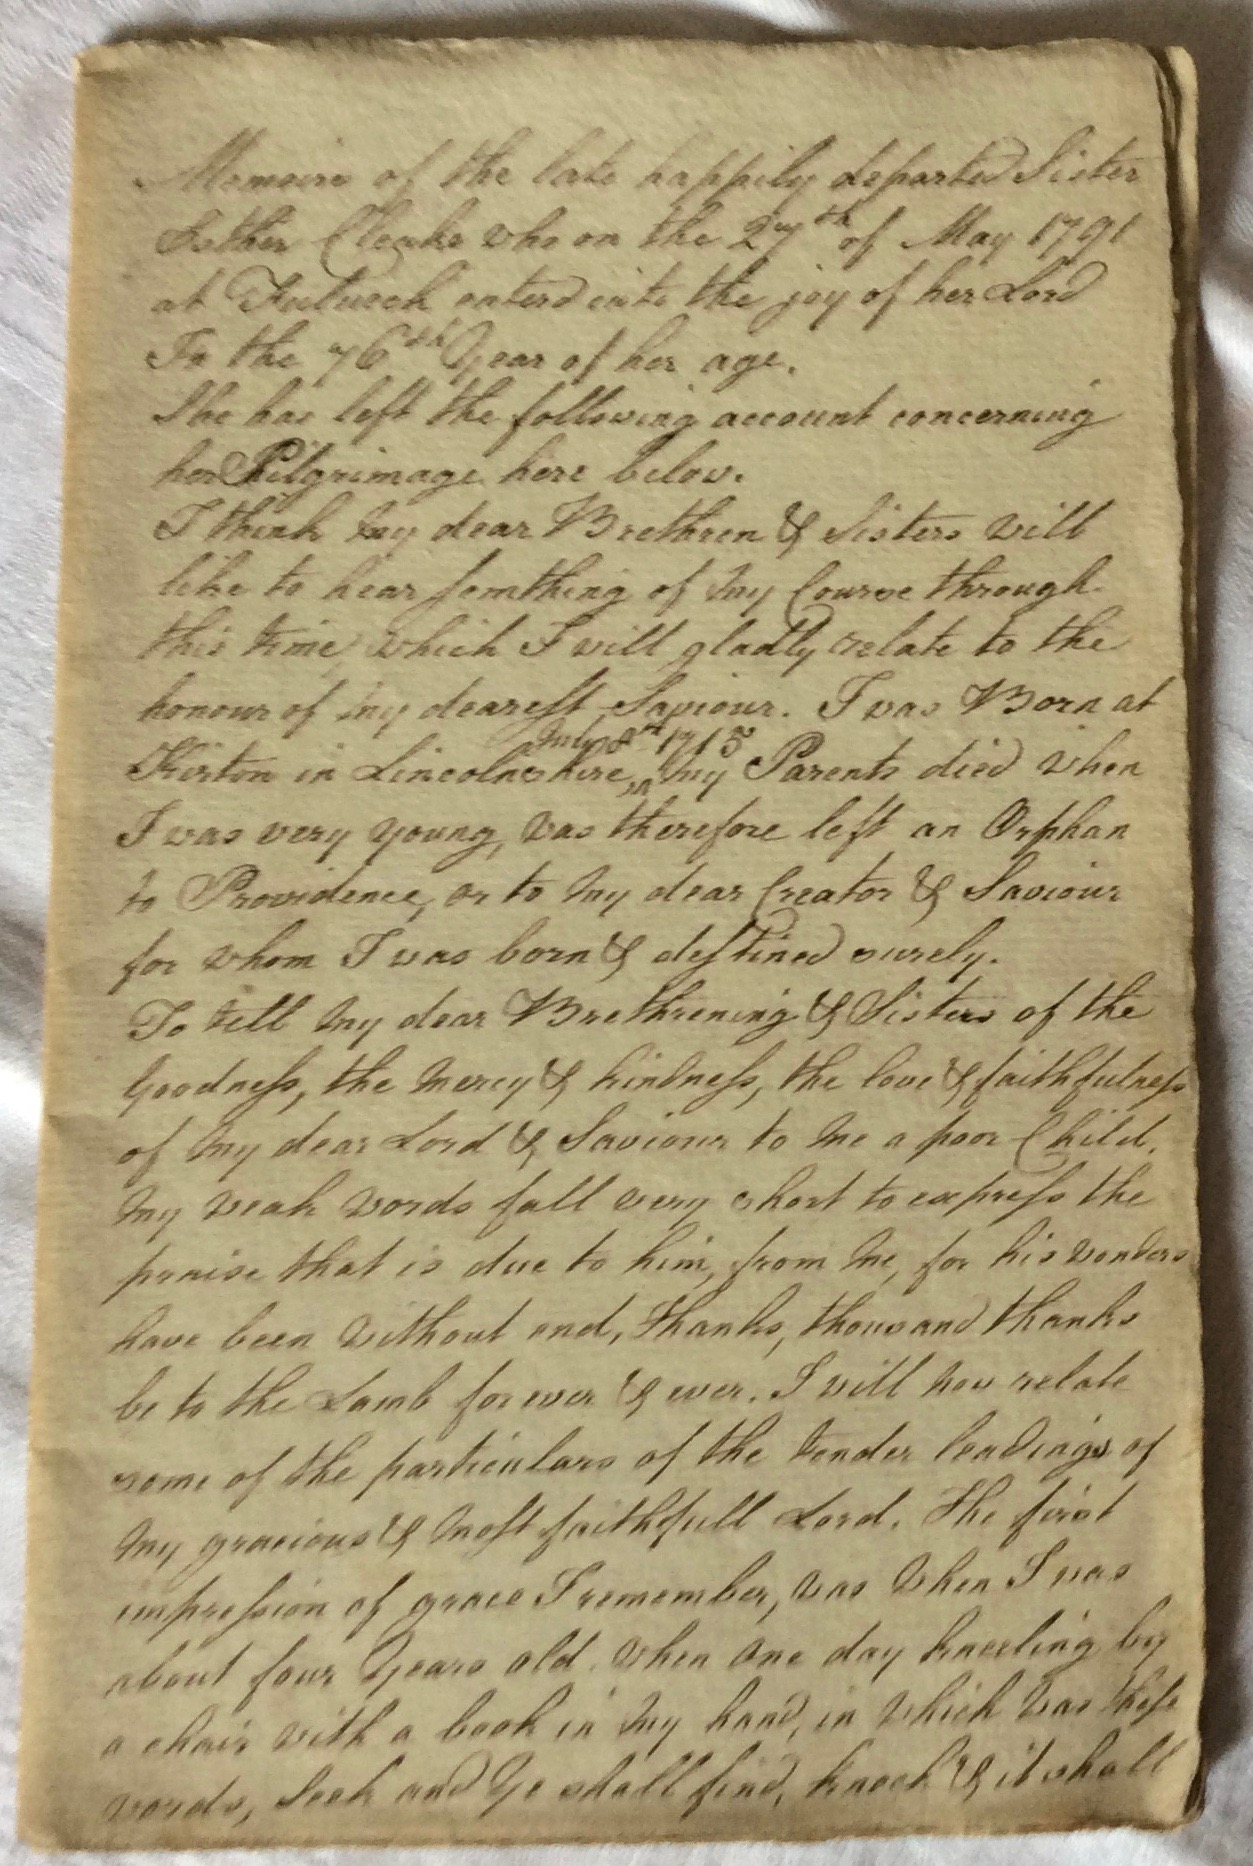 Memoirs of the late happily departed Sister
Esther Cleake who on the 27th of May 1791
at Fulneck enterd into the joy of her Lord
In the 76th Year of her age.
She has left the following account concerning
her Pilgrimage here below.
I think my dear Brethren & Sisters will
like to hear somthing of my Course through
this time, which I will gladly relate to the
honour of my dearest Saviour. I was Born at
July 8th 1715
Kirton in Lincolnshire, my Parents died when
I was very young, was therefore left an Orphan
to Providence, or to my dear Creator & Saviour
for whom I was born & destined surely.
To tell my dear Brethrening & Sisters of the
Goodness, the mercy & kindness, the love & faithfulness
of my dear Lord & Saviour to me a poor Child.
my weak words fall very short to express the
praise that is due to him, from me, for his wonders
have been without end, thanks, thousand thanks
be to the Lamb for ever & ever. I will now relate
some of the particulars of the tender leadings of
my gracious & most faithfull Lord. The first
impression of grace I remember, was when I was
about four Years old. when one day kneeling by
a chair with a book in my hand, in which was these
words, Seek and Ye shall find, knock & it shall